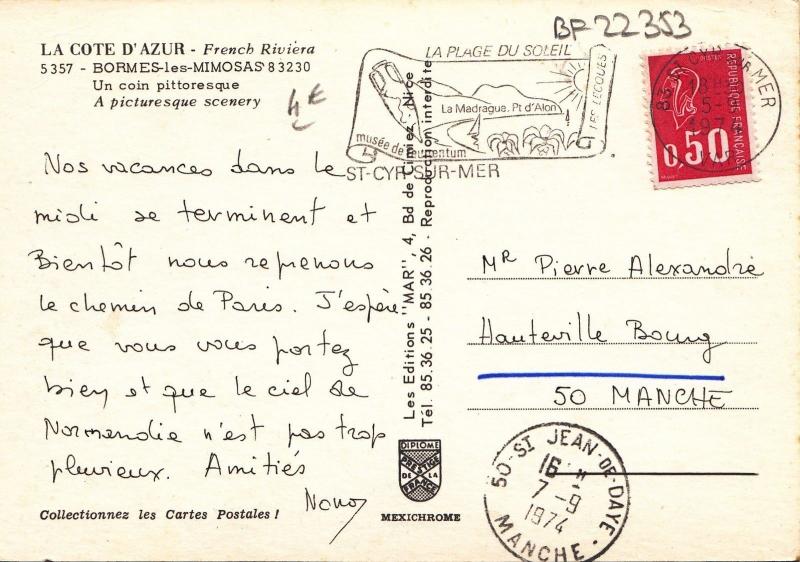 BF 22353
LA COTE D'AZUR - French Riviera
5357 - BORMES-les-MIMOSAS 83230
Un coin pittoresque
A picturesque scenery
4€
LA PLAGE DU SOLEIL
LES LECQUES
La Madrague. Pt d'Alon
musée de tauroentum
ST-CYR-SUR-MER
83 ST CYR SUR MER
18 H
5-
1974
VAR
REPUBLIQUE FRANÇAISE
0,50
Nos vacances dans le
midi se terminent et
Bientôt nous reprenons
le chemin de Paris. J'espère
que vous vous portez
bien et que le ciel de
Normandie n'est pas trop
pluvieux. Amitiés
Les Editions "MAR", 4, Bd de Cimiez, Nice
Tél. 85.36.25 - 85.36.26 - Reproduction interdite
Mr Pierre Alexandre
Hauteville Bourg
50 MANCHE
50 ST JEAN-DE-DAYE
16 H
7-9
1974
MANCHE
DIPLOME
PRESTIGE
DE LA
FRANCE
MEXICHROME
Collectionnez les Cartes Postales !